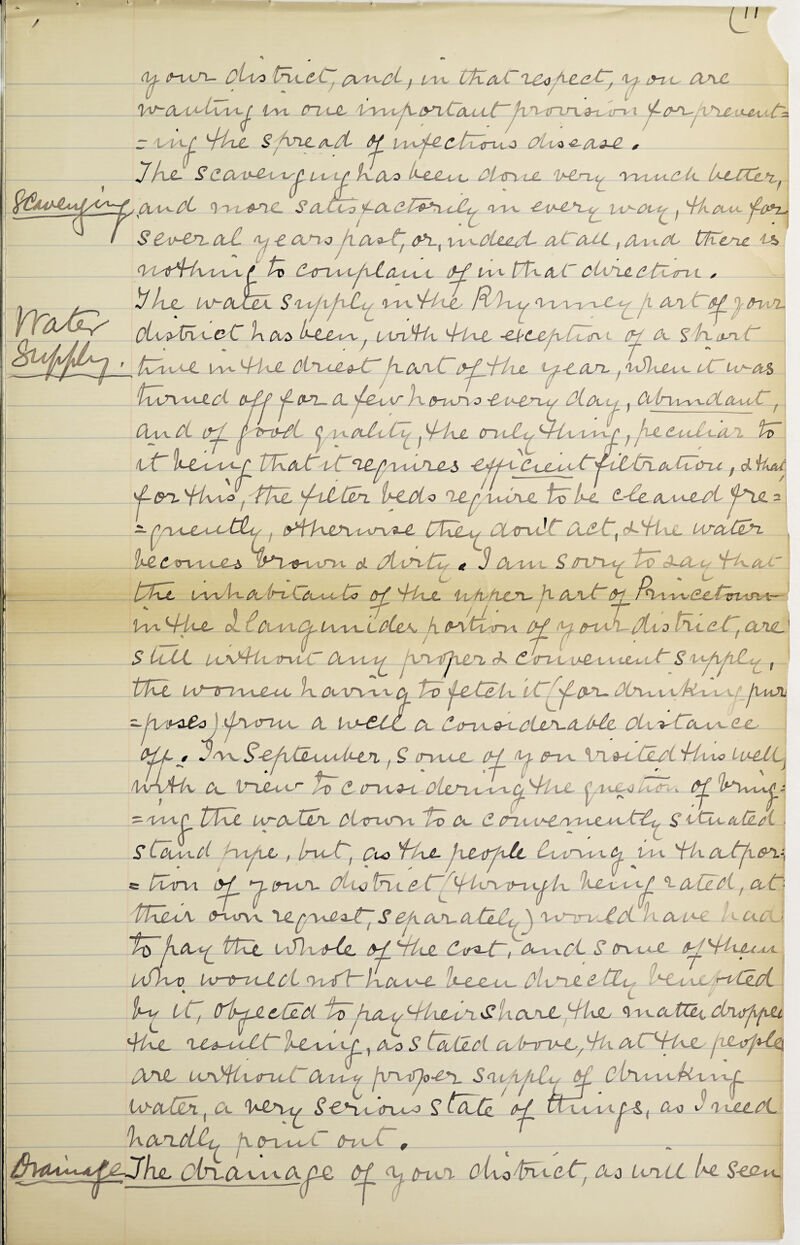 (11
your district, and, in that respect, you are
wanting in one important provision for prevent=
=ing the spread of infectious disease.
The scavenging has been done very much better,
Scavenging, and more satisfactorily in every way, than for
several years past, or, indeed at all, and there is
nothing to complain of in that direction.
The water supply in the Rhymney part of your
Water
district has been, with the exception of a short
Supply.
time in the driest part of the year, when it was
turned off for a few hours every day, abundant,
and of good quality, the only thing, peculiar to
it being that it requires efficient filtration, & that,
for this, the filter beds require to be cleaned fre=
=quently, otherwise they don't act, & the water
becomes brown & dirty. I am sorry to say that
the inhabitants of the upper part of Princetown
in the Llangunider portion of your district, are
still without any proper & convenient supply,
the women having to fetch it (for drinking pur
=poses) from a well a considerable distance
off. In September, some of you visited this well,
with a view to considering the question of bring=
=ing the water down to a conveniently situated
stand pipe, but, as the people living in that por=
=tion of your district (through being rated, at
their own request, separately) would have had
to pay the whole of the cost, and some of them
who would not have been directly benefited
by it, objected to pay their share, the matter dropped
the result being, as stated above, that the people
are without any proper supply of drinking
water, a very serious state of things, as I need
hardly point out.
Drainage The drainage of your district, as will be seen